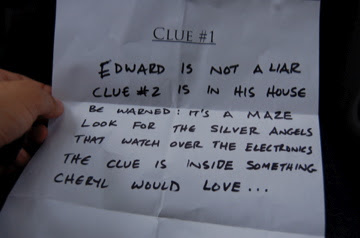 CLUE #1
EDWARD IS NOT A LIAR
CLUE #2 IS IN HIS HOUSE
BE WARNED: IT'S A MAZE
LOOK FOR THE SILVER ANGELS
THAT WATCH OVER THE ELECTRONICS
THE CLUE IS INSIDE SOMETHING
CHERYL WOULD LOVE...